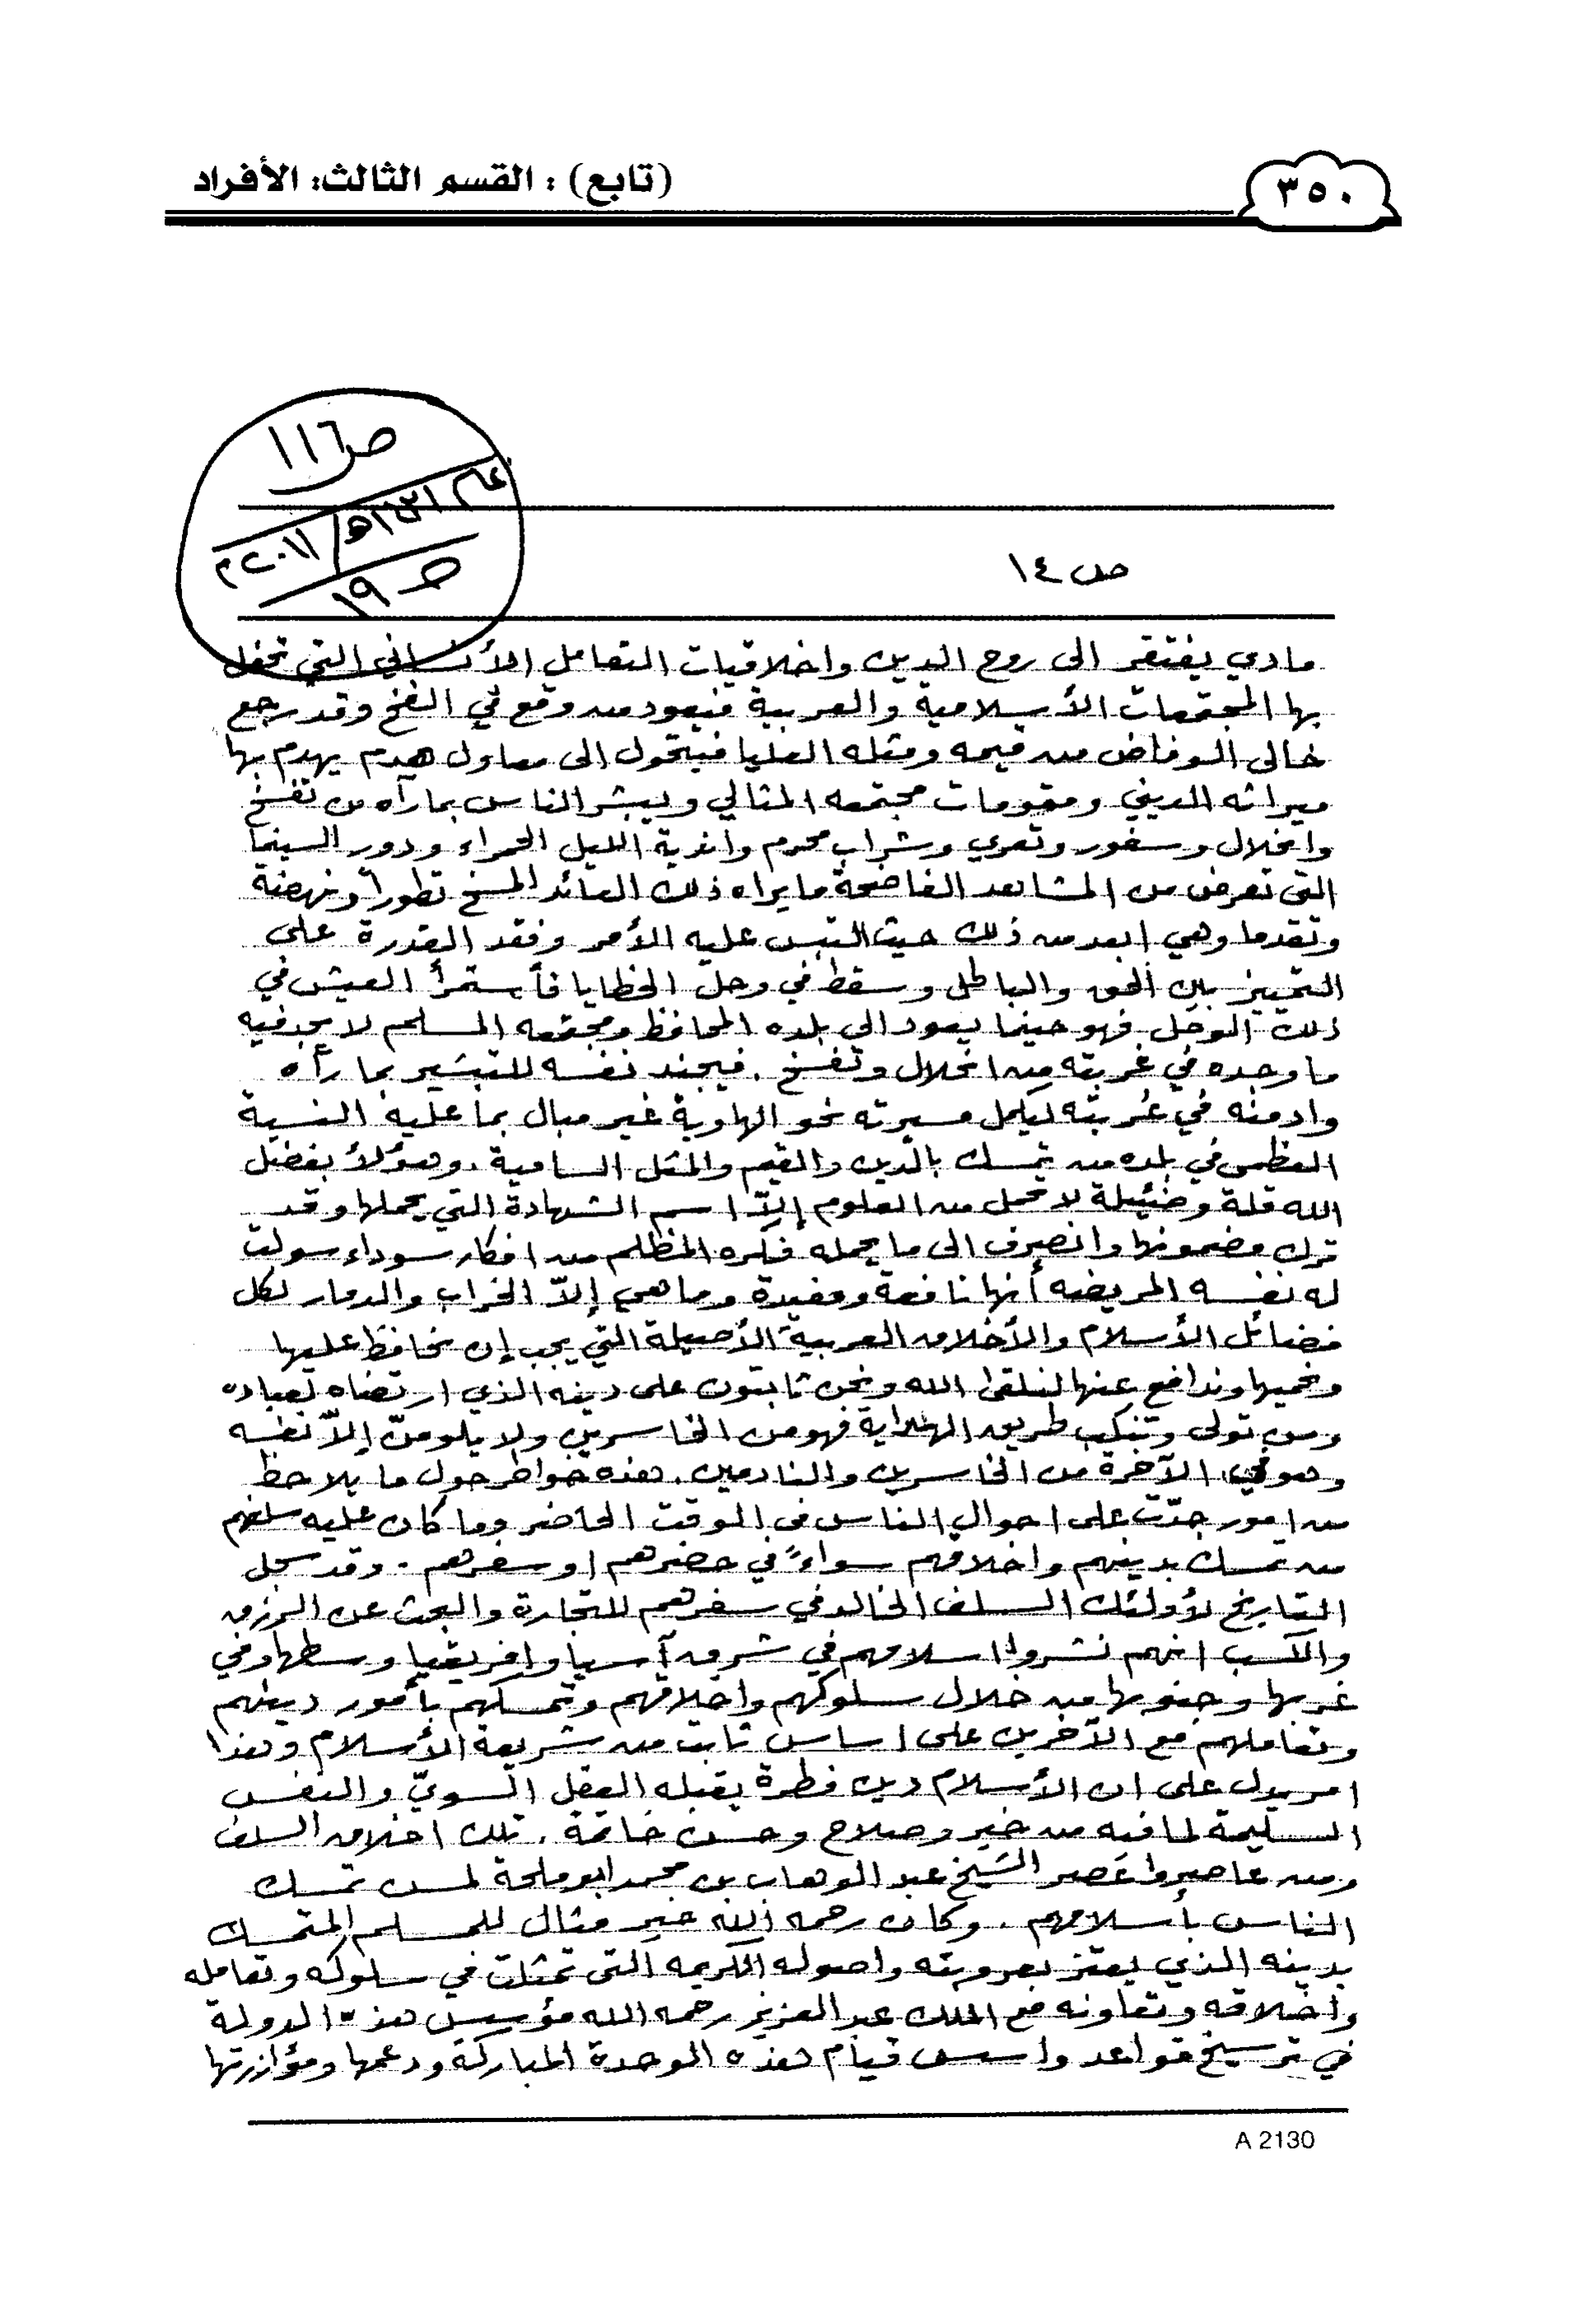 ٣٥٠
(تابع) : القسم الثالث: الأفراد
ص ١١٦
١٤٣٢هـ/٢٠١١م
ص ١٩
ص ١٤
مادي يفتقر الى روح الدين واخلاقيات التعامل الأنساني التي تحفل
بها المجتمعات الأسلامية والعربية فيعود من وقع في الفخ وقد رجع
خالي الوفاض من قيمه ومثله العليا فيتحول الى معاول هدم يهدم بها
ميراثه الديني ومقومات مجتمعه المثالي ويبشر الناس بما رآه من تفسخ
وانحلال وسفور وتعري وشراب محرم واندية الليل الحمراء ودور السينما
التي تعرض من المشاهد الفاضحة ما يراه ذلك العائد المسخ تطوراً ونهضة
وتقدما وهي ابعد من ذلك حيث التبس عليه الأمر وفقد القدرة على
التمييز بين الحق والباطل وسقط في وحل الخطايا فأستمرأ العيش في
ذلك الوحل فهو حينما يعود الى بلده المحافظ ومجتمعه المسلم لا يجد فيه
ما وجده في غربته من انحلال وتفسخ . فيجند نفسه للتبشير بما رآه
وادمنه في غربته ليكمل مسيرته نحو الهاوية غير مبال بما عليه النسبة
العظمى في بلده من تمسك بالدين والقيم والمثل السامية . وهؤلأ بفضل
الله قلة وضئيلة لا تحمل من العلوم إلاّ اسم الشهادة التي يحملها وقد
ترك مضمونها وانصرف الى ما يحمله فكره المظلم من افكار سوداء سولت
له نفسه المريضه أنها نافعة ومفيدة وما هي إلاّ الخراب والدمار لكل
فضائل الأسلام والأخلاق العربية الأصيلة التي يجب إن نحافظ عليها
ونحميها وندافع عنها لنلقى الله ونحن ثابتون على دينه الذي ارتضاه لعباده
ومن تولى وتنكب طريق الهداية فهو من الخاسرين ولا يلومنّ إلاّ نفسه
وهو في الآخرة من الخاسرين والنادمين . هذه خواطر حول ما يلاحظ
من امور جدّت على احوال الناس في الوقت الحاضر وما كان عليه سلفهم
من تمسك بدينهم واخلاقهم سواءً في حضرهم او سفرهم . وقد سجل
التاريخ لأولئك السلف الخالد في سفرهم للتجارة والبحث عن الرزق
والكسب انهم نشروا اسلامهم في شرق آسيا وافريقيا وسطها وفي
غربها وجنوبها من خلال سلوكهم واخلاقهم وتمسكهم بأمور دينهم
وتعاملهم مع الآخرين على اساس ثابت من شريعة الأسلام وهذا
امر يدل على ان الأسلام دين فطرة يقبله العقل السويّ والنفس
السليمة لما فيه من خير وصلاح وحسن خاتمة . تلك اخلاق السلف
ومن عاصروا عصر الشيخ عبد الوهاب بن محمد ابو ملحة لمس تمسك
الناس بأسلامهم . وكان رحمه الله خير مثال للمسلم المتمسك
بدينه الذي يعتز بعروبته واصوله الكريمه التي تمثلت في سلوكه وتعامله
وأخلاقه وتعاونه مع الملك عبد العزيز رحمه الله مؤسس هذه الدولة
في ترسيخ قواعد واسس قيام هذه الوحدة المباركة ودعمها ومؤازرتها
A 2130